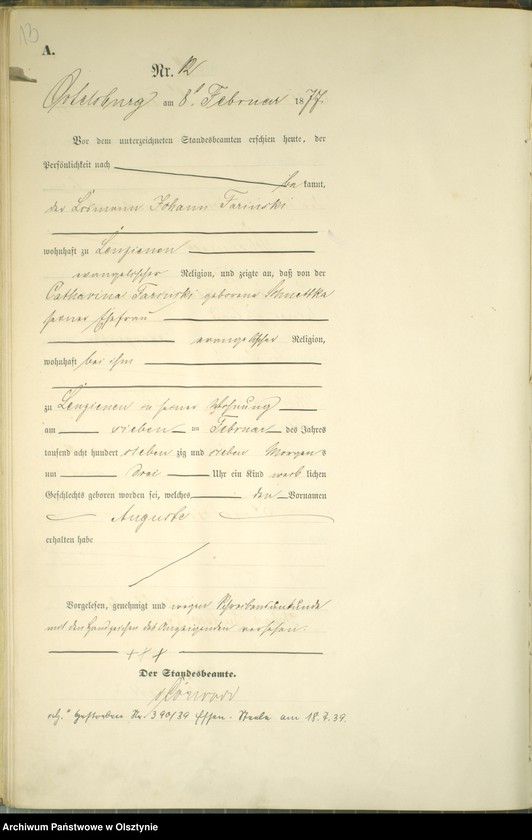 13
A.
Nr. 12
Ortelsburg am 8t Februar 1877.
Vor dem unterzeichneten Standesbeamten erschien heute, der
Persönlichkeit nach
be kannt,
der Losmann Johann Farinski
wohnhaft zu Lenzienen
evangelischer Religion, und zeigte an, daß von der
Catharina Farinski geborene
seiner Ehefrau
evangelischer Religion,
wohnhaft bei ihm
zu Lenzienen in seiner Wohnung
am sieben ten Februar des Jahres
tausend acht hundert sieben zig und sieben Morgens
um drei Uhr ein Kind weib lichen
Geschlechts geboren worden sei, welches den Vornamen
Auguste
erhalten habe
Vorgelesen, genehmigt und wegen Schreibensunkunde
mit den Handzeichen des Anzeigenden versehen.
+++
Der Standesbeamte.
Gestorben Nr. 390/39 Essen-Steele am 18.7.39.
Archiwum Państwowe w Olsztynie